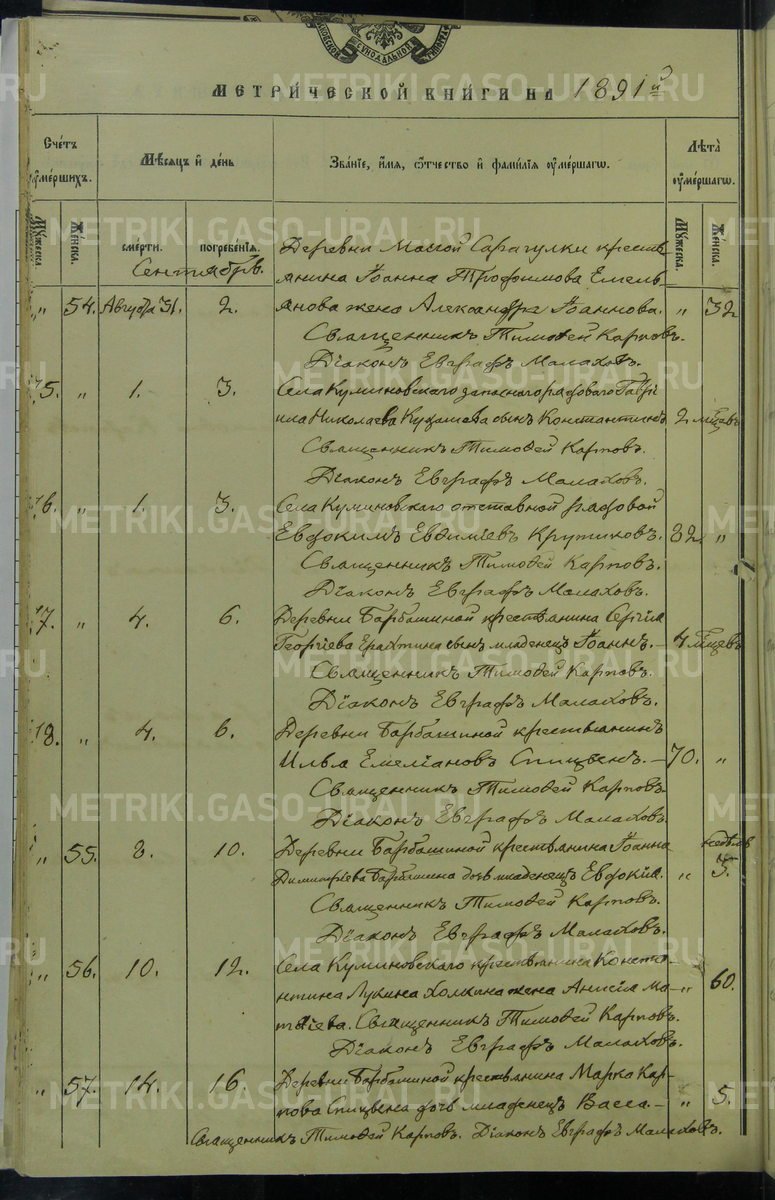 МЕТРИ́ЧЕСКОЙ КНИ́ГИ НА 1891й
Сче́тъ ᲂу҆ме́ршихъ.
Мѣ́сяцъ и҆ де́нь
Зва́нїе, и҆́мя, ѻ҆́тчество и҆ фами́лїѧ ᲂу҆ме́ршагѡ.
Лѣ́та ᲂу҆ме́ршагѡ.
Му́жеска
Же́нска.
сме́рти.
погребе́нїя.
Му́жеска
Же́нска.
Сентябрь.
Деревни Малой Сарагулки кресть-
янина Іоанна Трофимова Емель-
„ 54. Августа 31. 2. янова жена Александра Іоаннова. „ 32
Священникъ Тимоѳей Карповъ.
Діаконъ Евграфъ Малаховъ.
75. „ 1. 3. Села Куминовскаго запаснаго рядоваго Гаврі-
ила Николаева сынъ Константинъ 2 мѣсяц.
Священникъ Тимоѳей Карповъ.
Діаконъ Евграфъ Малаховъ.
76. „ 1. 3. Села Куминовскаго отставной рядовой
Евдокимъ Евѳиміевъ Крутиковъ. 82. „
Священникъ Тимоѳей Карповъ.
Діаконъ Евграфъ Малаховъ.
77. „ 4. 6. Деревни Барбашиной крестьянина Сергія
Георгіева сынъ младенецъ Іоаннъ. — 4 мѣсяц.
Священникъ Тимоѳей Карповъ.
Діаконъ Евграфъ Малаховъ.
78. „ 4. 6. Деревни Барбашиной крестьянинъ
Илья Емеліановъ Спицынъ. — 70. „
Священникъ Тимоѳей Карповъ.
Діаконъ Евграфъ Малаховъ.
„ 55. 8. 10. Деревни Барбашиной крестьянина Іоанна недѣль
Димитріева Барбашина дочь младенецъ Евдокія. „ 5.
Священникъ Тимоѳей Карповъ.
Діаконъ Евграфъ Малаховъ.
„ 56. 10. 12. Села Куминовскаго крестьянина Конста-
нтина Лукина Холкина жена Анисія Ма- „ 60.
тѳіева. Священникъ Тимоѳей Карповъ.
Діаконъ Евграфъ Малаховъ.
„ 57. 14. 16. Деревни Барбашиной крестьянина Марка Кар-
пова Спицына дочь младенецъ Васса. — „ 5.
Священникъ Тимоѳей Карповъ. Діаконъ Евграфъ Малаховъ.
METRIKI.GASO-URAL.RU